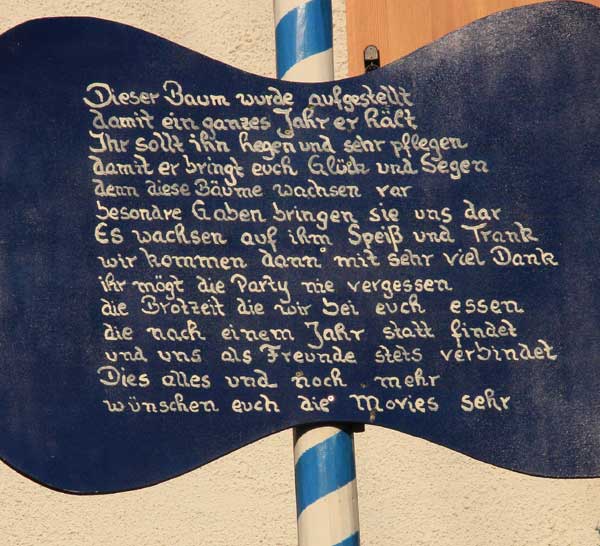 Dieser Baum wurde aufgestellt
damit ein ganzes Jahr er hält
Ihr sollt ihn hegen und sehr pflegen
damit er bringt euch Glück und Segen
denn diese Bäume wachsen rar
besondre Gaben bringen sie uns dar
Es wachsen auf ihm Speiß und Trank
wir kommen dann mit sehr viel Dank
ihr mögt die Party nie vergessen
die Brotzeit die wir bei euch essen
die nach einem Jahr statt findet
und uns als Freunde stets verbindet
Dies alles und noch mehr
wünschen euch die Movies sehr